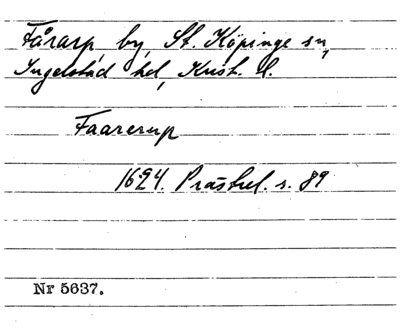 Fårarp by, St. Köpinge sn,
Ingelstad hd, Krist. l.
Faarerup
1624. Prästrel. s. 89
Nr 5637.